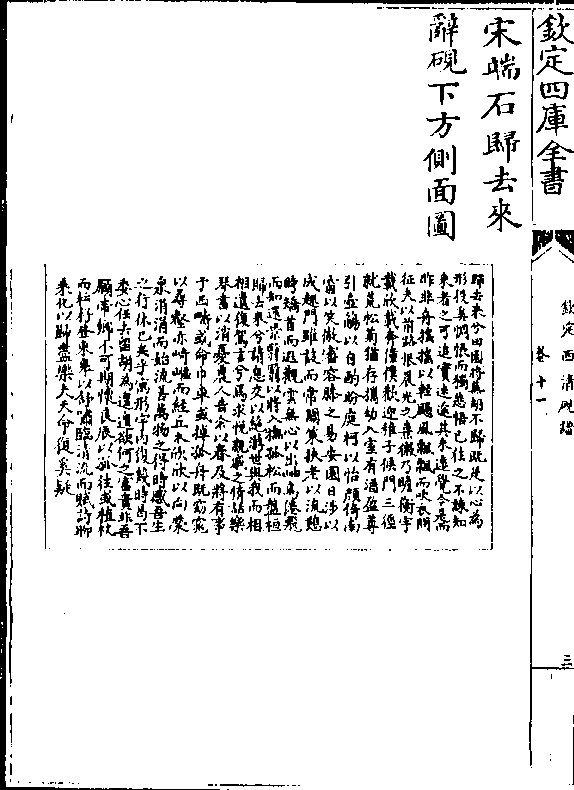 欽定四庫全書
欽定西清硯譜
卷十一
三
宋端石歸去來
辭硯下方側面圖
歸去來兮田園將蕪胡不歸既是以心為
形役奚惆悵而獨悲悟已往之不諫知
來者之可追實迷途其未遠覺今是而
昨非舟搖搖以輕颺風飄飄而吹衣問
征夫以前路恨晨光之熹微乃瞻衡宇
載欣載奔僮僕歡迎稚子候門三徑
就荒松菊猶存攜幼入室有酒盈尊
引壺觴以自酌眄庭柯以怡顏倚南
窗以笑傲審容膝之易安園日涉以
成趣門雖設而常關策扶老以流憩
時矯首而遐觀雲無心以出岫鳥倦飛
而知還景翳翳以將入撫孤松而盤桓
歸去來兮請息交以絕游世與我而相
相遺復駕言兮焉求悅親戚之情話樂
琴書以消憂農人告余以春及將有事
于西疇或命巾車或棹孤舟既窈窕
以尋壑亦崎嶇而經丘木欣欣以向榮
泉涓涓而始流善萬物之得時感吾生
之行休已矣乎寓形宇內復幾時曷不
委心任去留胡為遑遑欲何之富貴非吾
願帝鄉不可期懷良辰以孤往或植杖
而耘耔登東皋以舒嘯臨清流而賦詩聊
乘化以歸盡樂夫天命復奚疑